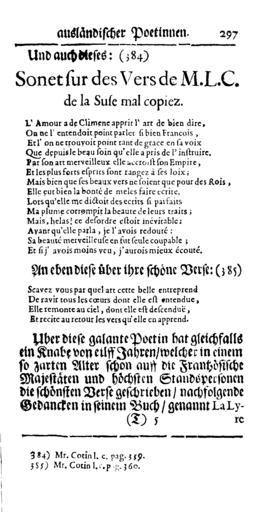 ausländischer Poetinnen. 297
Und auch dieses: (384)
Sonet sur des Vers de M.L.C.
de la Suse mal copiez.
L'Amour a de Climene apprit l'art de bien dire,
On ne l'entendoit point parler si bien Francois,
Et l'on ne trouvoit point tant de grace en sa voix
Que depuis le beau soin qu'elle a pris de l'instruire.
Par son art merveilleux elle accroist son Empire,
Et les plus forts esprits sont rangez à ses loix;
Mais bien que ses beaux vers ne soient que pour des Rois,
Elle eut bien la bonté de me les faire ecrire.
Lors qu'elle me dictoit des ecrits si parfaits
Ma plume corrompit la beaute de leurs traits;
Mais, helas! ce desordre estoit inévitable;
Avant qu'elle parla, je l'avois redouté:
Sa beauté merveilleuse en fut seule coupable;
Et si j'avois moins veu, j'aurois mieux écouté.
An eben diese über ihre schöne Verse: (385)
Scavez vous par quel art cette belle entreprend
De ravir tous les cœurs dont elle est entendue,
Elle remonte au ciel, dont elle est descenduë,
Et recite au retour les vers qu'elle en apprend.
Über diese galante Poetin hat gleichfalls
ein Knabe von eilff Jahren/welcher in einem
so zarten Alter schon auff die Frantzösische
Majestäten und höchsten Standspersonen
die schönsten Verse geschrieben/nachfolgende
Gedancken in seinem Buch/genannt La Ly-
(T) 5 re
384) Mr. Cotin l. c. pag. 359.
385) Mr. Cotin l. c. pag. 360.